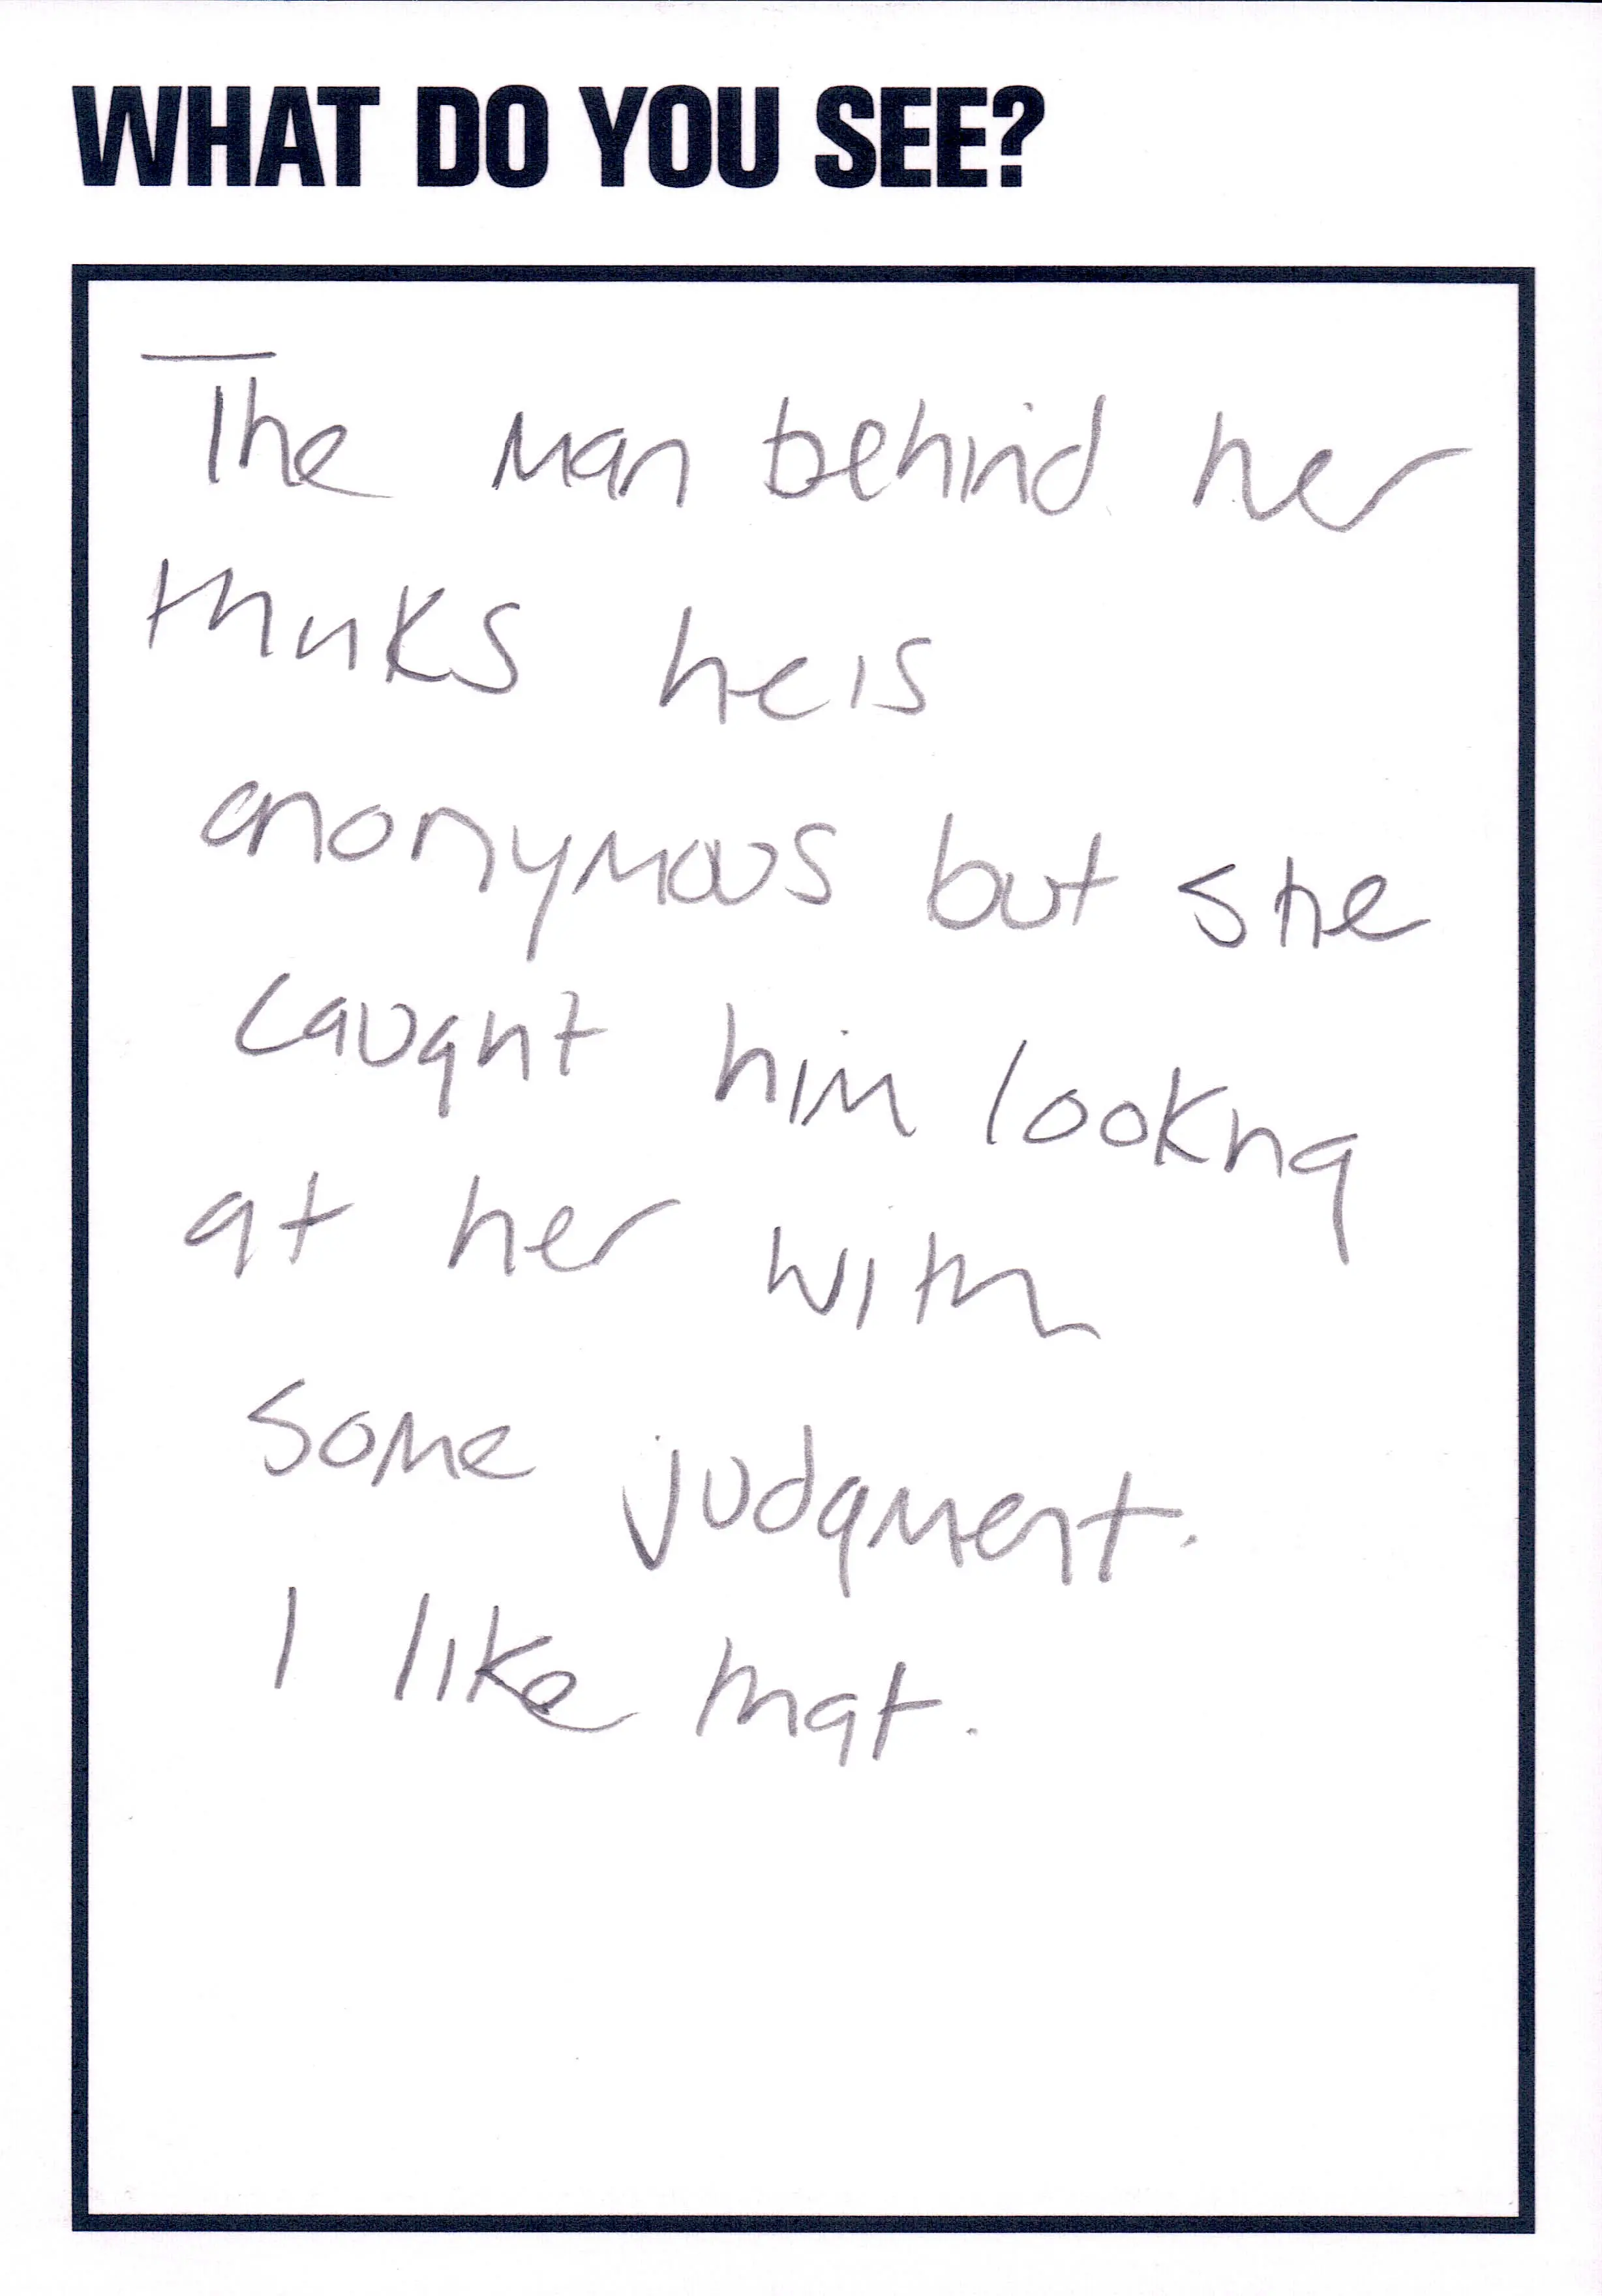 WHAT DO YOU SEE?
The man behind her
thinks he is
anonymous but she
caught him looking
at her with
some judgment.
I like that.